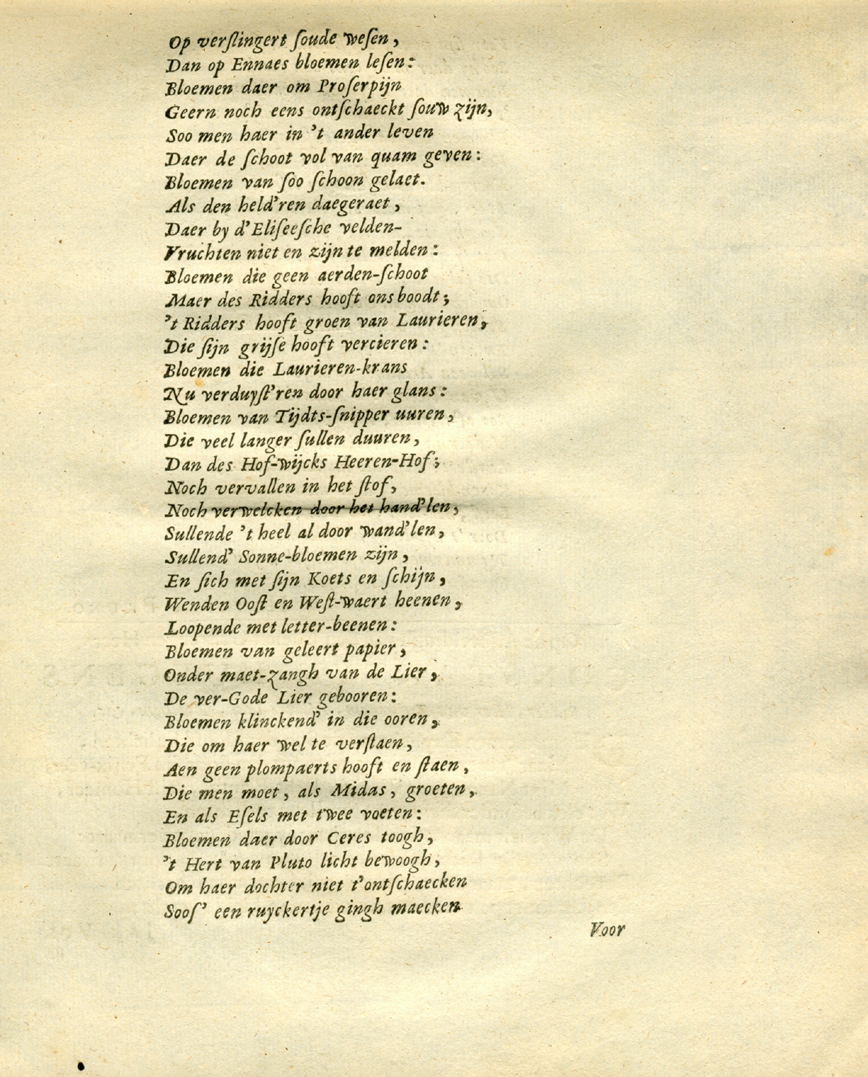 Op verſlingert ſoude weſen,
Dan op Ennaes bloemen leſen:
Bloemen daer om Proſerpijn
Geern noch eens ontſchaeckt ſouw zijn,
Soo men haer in 't ander leven
Daer de ſchoot vol van quam geven:
Bloemen van ſoo ſchoon gelaet.
Als den held'ren daegeraet,
Daer by d'Eliſeeſche velden-
Vruchten niet en zijn te melden:
Bloemen die geen aerden-ſchoot
Maer des Ridders hooft ons boodt;
't Ridders hooft groen van Laurieren,
Die ſijn grijſe hooft vercieren:
Bloemen die Laurieren-krans
Nu verduyſt'ren door haer glans:
Bloemen van Tijdts-ſnipper uuren,
Die veel langer ſullen duuren,
Dan des Hof-wijcks Heeren-Hof;
Noch vervallen in het ſtof,
Noch verwelcken door het hand'len,
Sullende 't heel al door wand'len,
Sullend' Sonne-bloemen zijn,
En ſich met ſijn Koets en ſchijn,
Wenden Ooſt en Weſt-waert heenen,
Loopende met letter-beenen:
Bloemen van geleert papier,
Onder maet-zangh van de Lier,
De ver-Gode Lier gebooren:
Bloemen klinckend' in die ooren,
Die om haer wel te verſtaen,
Aen geen plompaerts hooft en ſtaen,
Die men moet, als Midas, groeten,
En als Eſels met twee voeten:
Bloemen daer door Ceres toogh,
't Hert van Pluto licht bewoogh,
Om haer dochter niet t'ontſchaecken
Sooſ' een ruyckertje gingh maecken
Voor